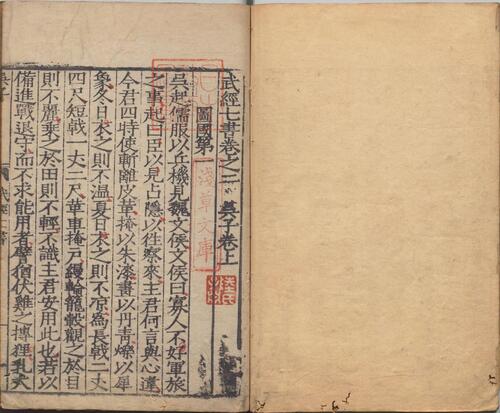 武經七書卷之三 吳子卷上
圖國第一
淺草文庫
吳起儒服以兵機見魏文侯文侯曰寡人不好軍旅
之事起曰臣以見占隱以往察來主君何言與心違
今君四時使斬離皮革掩以朱漆畫以丹青爍以犀
象冬日衣之則不温夏日衣之則不凉為長戟二丈
四尺短戟一丈二尺革車掩戸縵輪籠轂觀之於目
則不麗乘之於田則不輕不識主君安用此也若以
備進戰退守而不求能用者譬猶伏雞之搏狸乳犬